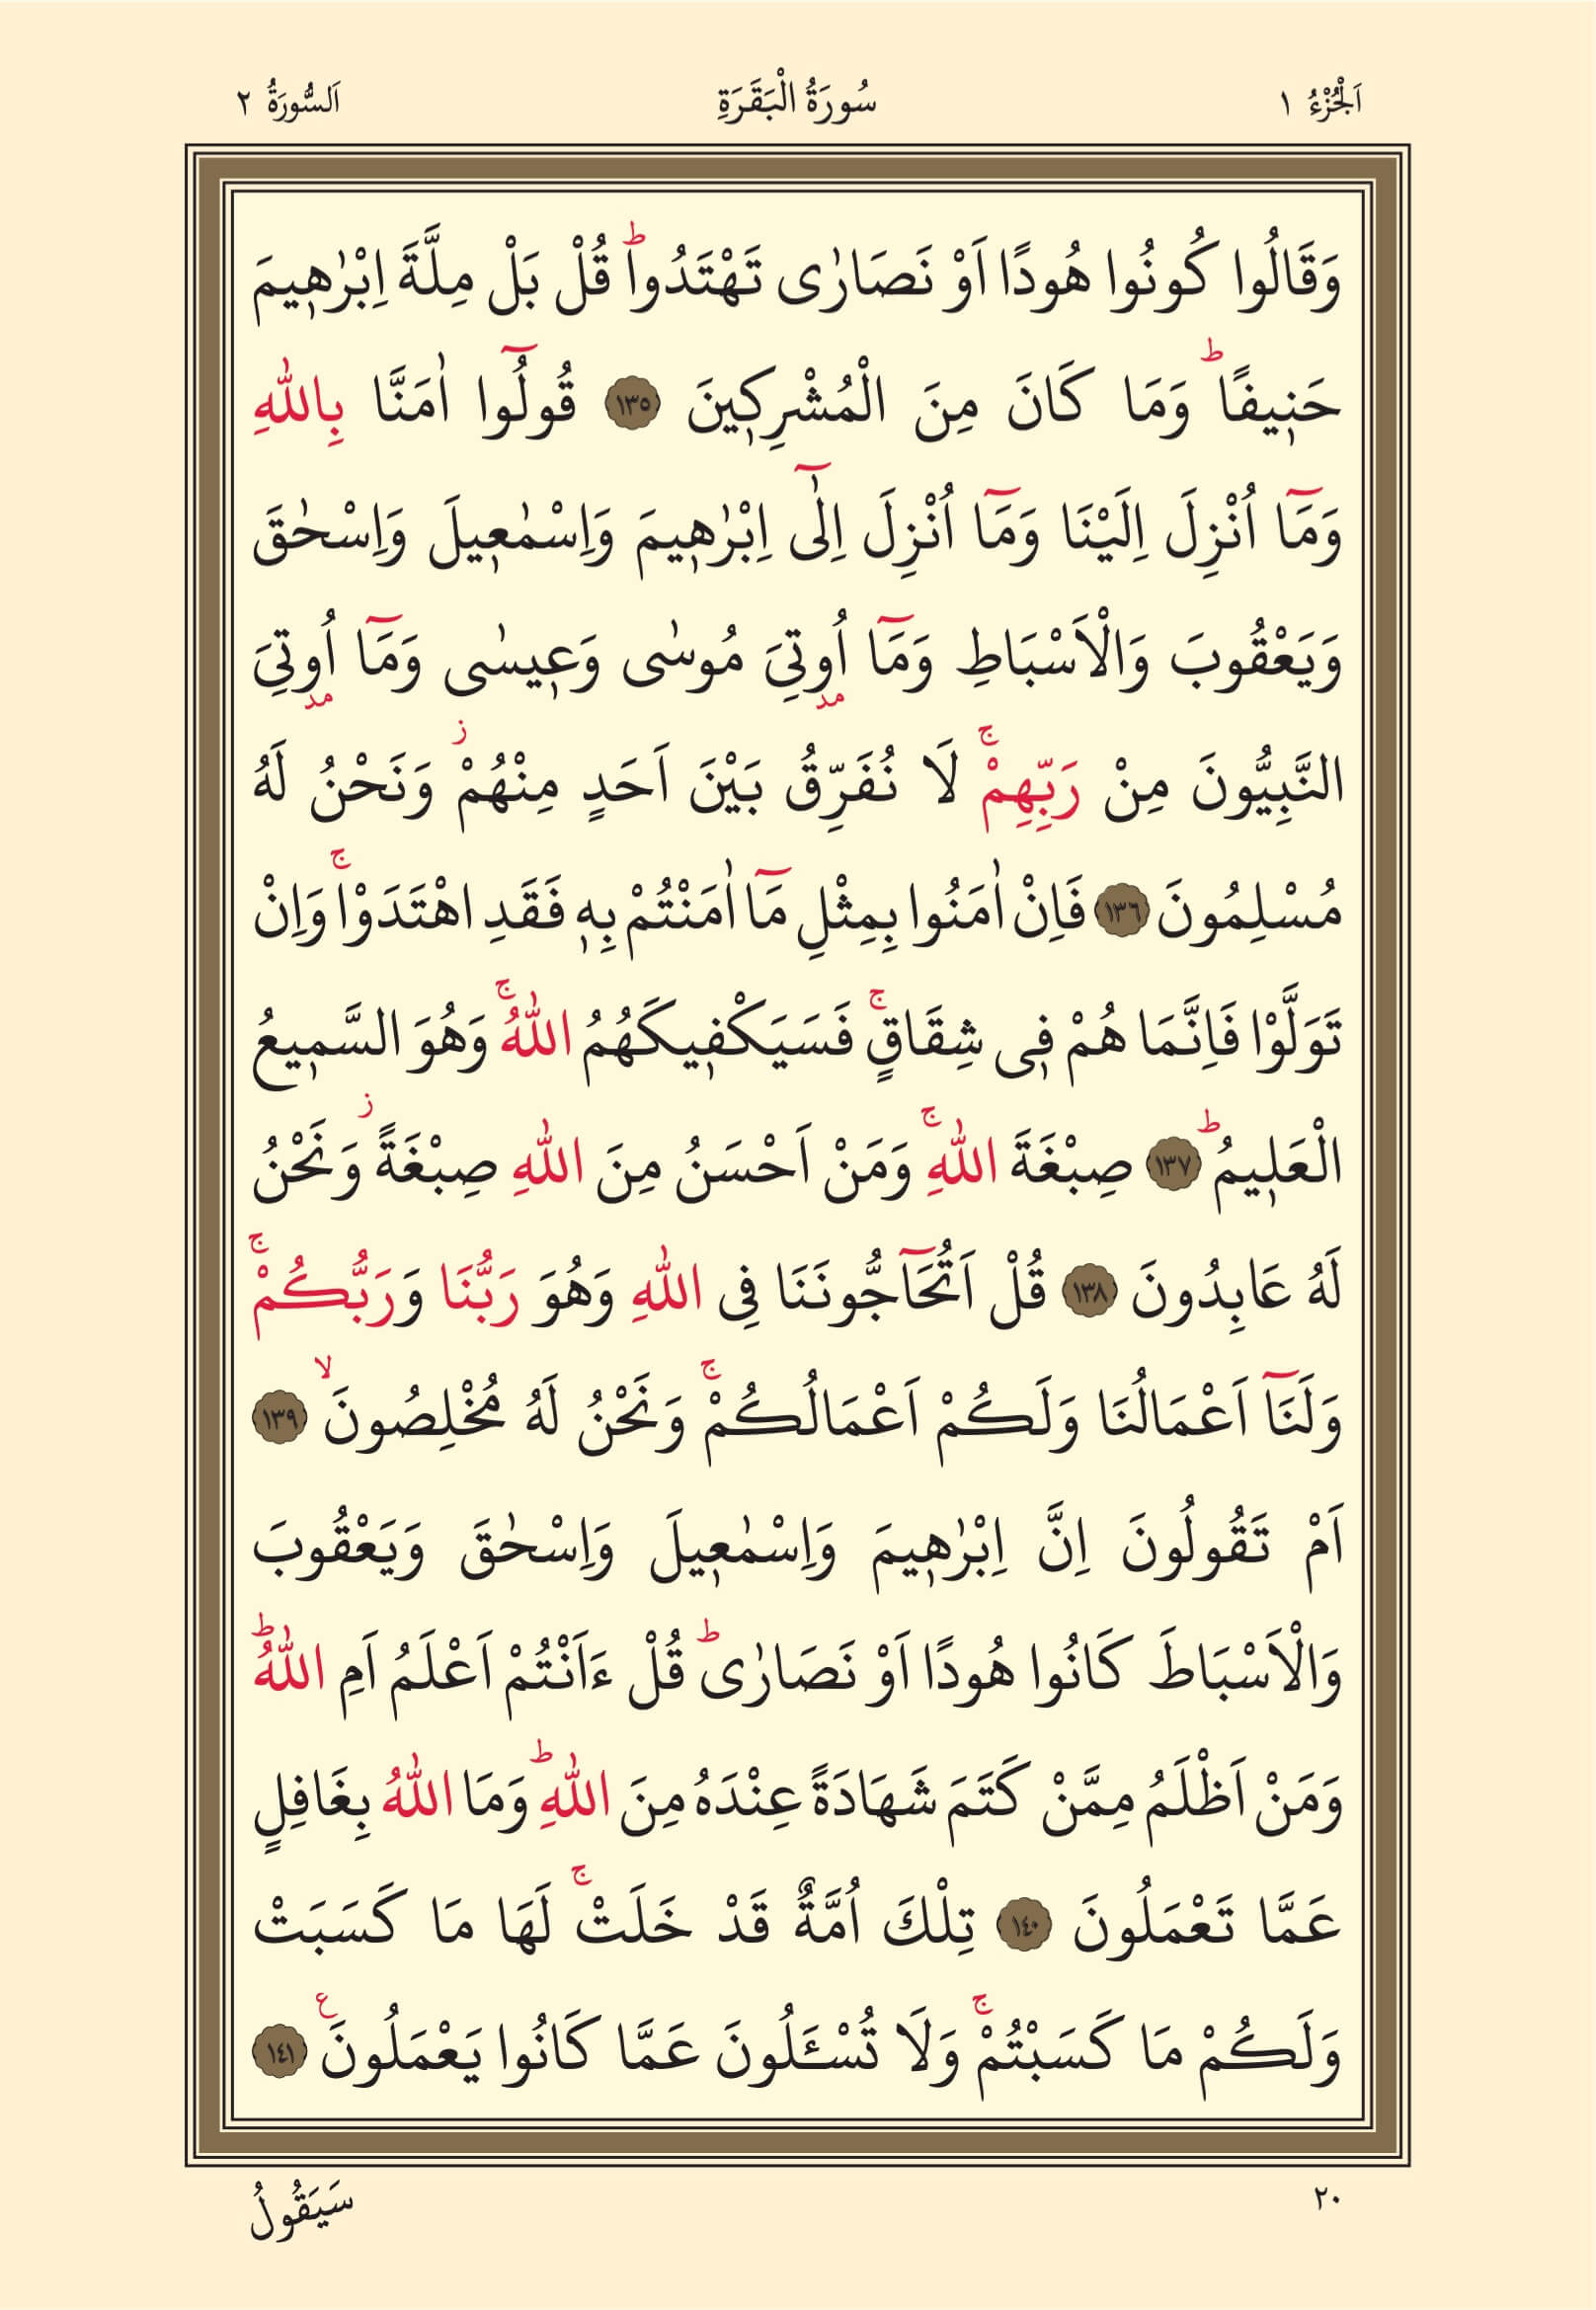 اَلْجُزْءُ ١
سُورَةُ الْبَقَرَةِ
اَلسُّورَةُ ٢
وَقَالُوا كُونُوا هُودًا اَوْ نَصَارٰى تَهْتَدُواۜ قُلْ بَلْ مِلَّةَ اِبْرٰه۪يمَ
حَن۪يفًاۜ وَمَا كَانَ مِنَ الْمُشْرِك۪ينَ ١٣٥ قُولُٓوا اٰمَنَّا بِاللّٰهِ
وَمَٓا اُنْزِلَ اِلَيْنَا وَمَٓا اُنْزِلَ اِلٰٓى اِبْرٰه۪يمَ وَاِسْمٰع۪يلَ وَاِسْحٰقَ
وَيَعْقُوبَ وَالْاَسْبَاطِ وَمَٓا اُو۫تِيَ مُوسٰى وَع۪يسٰى وَمَٓا اُو۫تِيَ
النَّبِيُّونَ مِنْ رَبِّهِمْۚ لَا نُفَرِّقُ بَيْنَ اَحَدٍ مِنْهُمْۘ وَنَحْنُ لَهُ
مُسْلِمُونَ ١٣٦ فَاِنْ اٰمَنُوا بِمِثْلِ مَٓا اٰمَنْتُمْ بِه۪ فَقَدِ اهْتَدَوْاۚ وَاِنْ
تَوَلَّوْا فَاِنَّمَا هُمْ ف۪ى شِقَاقٍۚ فَسَيَكْف۪يكَهُمُ اللّٰهُۚ وَهُوَ السَّم۪يعُ
الْعَل۪يمُۜ ١٣٧ صِبْغَةَ اللّٰهِۚ وَمَنْ اَحْسَنُ مِنَ اللّٰهِ صِبْغَةًۘ وَنَحْنُ
لَهُ عَابِدُونَ ١٣٨ قُلْ اَتُحَٓاجُّونَنَا فِى اللّٰهِ وَهُوَ رَبُّنَا وَرَبُّكُمْۚ
وَلَنَٓا اَعْمَالُنَا وَلَكُمْ اَعْمَالُكُمْۚ وَنَحْنُ لَهُ مُخْلِصُونَۙ ١٣٩
اَمْ تَقُولُونَ اِنَّ اِبْرٰه۪يمَ وَاِسْمٰع۪يلَ وَاِسْحٰقَ وَيَعْقُوبَ
وَالْاَسْبَاطَ كَانُوا هُودًا اَوْ نَصَارٰىۜ قُلْ ءَاَنْتُمْ اَعْلَمُ اَمِ اللّٰهُۜ
وَمَنْ اَظْلَمُ مِمَّنْ كَتَمَ شَهَادَةً عِنْدَهُ مِنَ اللّٰهِۜ وَمَا اللّٰهُ بِغَافِلٍ
عَمَّا تَعْمَلُونَ ١٤٠ تِلْكَ اُمَّةٌ قَدْ خَلَتْۚ لَهَا مَا كَسَبَتْ
وَلَكُمْ مَا كَسَبْتُمْۚ وَلَا تُسْـَٔلُونَ عَمَّا كَانُوا يَعْمَلُونَ۟ ١٤١
٢٠
سَيَقُولُ